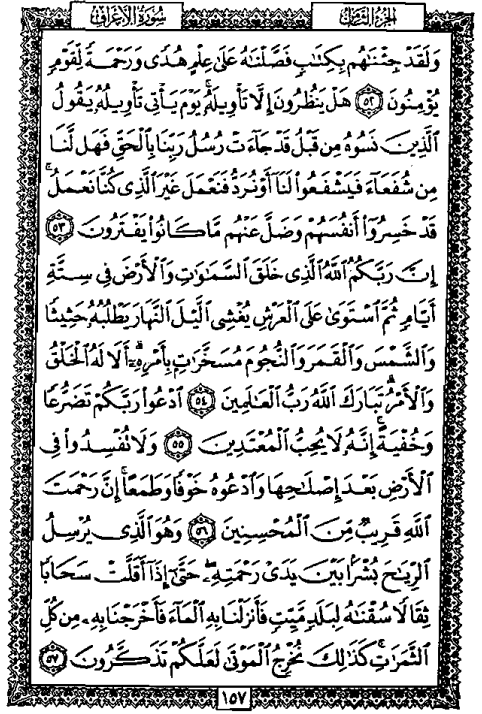 سُورَةُ الأَعْرَافِ
الجُزْءُ الثَّامِنُ
وَلَقَدْ جِئْنَٰهُم بِكِتَٰبٍ فَصَّلْنَٰهُ عَلَىٰ عِلْمٍ هُدًى وَرَحْمَةً لِّقَوْمٍ
يُؤْمِنُونَ ٥٢ هَلْ يَنظُرُونَ إِلَّا تَأْوِيلَهُۥ يَوْمَ يَأْتِى تَأْوِيلُهُۥ يَقُولُ
ٱلَّذِينَ نَسُوهُ مِن قَبْلُ قَدْ جَآءَتْ رُسُلُ رَبِّنَا بِٱلْحَقِّ فَهَل لَّنَا
مِن شُفَعَآءَ فَيَشْفَعُوا۟ لَنَآ أَوْ نُرَدُّ فَنَعْمَلَ غَيْرَ ٱلَّذِى كُنَّا نَعْمَلُ ۚ
قَدْ خَسِرُوٓا۟ أَنفُسَهُمْ وَضَلَّ عَنْهُم مَّا كَانُوا۟ يَفْتَرُونَ ٥٣
إِنَّ رَبَّكُمُ ٱللَّهُ ٱلَّذِى خَلَقَ ٱلسَّمَٰوَٰتِ وَٱلْأَرْضَ فِى سِتَّةِ
أَيَّامٍ ثُمَّ ٱسْتَوَىٰ عَلَى ٱلْعَرْشِ يُغْشِى ٱلَّيْلَ ٱلنَّهَارَ يَطْلُبُهُۥ حَثِيثًا
وَٱلشَّمْسَ وَٱلْقَمَرَ وَٱلنُّجُومَ مُسَخَّرَٰتٍۭ بِأَمْرِهِۦٓ ۗ أَلَا لَهُ ٱلْخَلْقُ
وَٱلْأَمْرُ ۗ تَبَارَكَ ٱللَّهُ رَبُّ ٱلْعَٰلَمِينَ ٥٤ ٱدْعُوا۟ رَبَّكُمْ تَضَرُّعًا
وَخُفْيَةً ۚ إِنَّهُۥ لَا يُحِبُّ ٱلْمُعْتَدِينَ ٥٥ وَلَا تُفْسِدُوا۟ فِى
ٱلْأَرْضِ بَعْدَ إِصْلَٰحِهَا وَٱدْعُوهُ خَوْفًا وَطَمَعًا ۚ إِنَّ رَحْمَتَ
ٱللَّهِ قَرِيبٌ مِّنَ ٱلْمُحْسِنِينَ ٥٦ وَهُوَ ٱلَّذِى يُرْسِلُ
ٱلرِّيَٰحَ بُشْرًۢا بَيْنَ يَدَىْ رَحْمَتِهِۦ ۖ حَتَّىٰٓ إِذَآ أَقَلَّتْ سَحَابًا
ثِقَالًا سُقْنَٰهُ لِبَلَدٍ مَّيِّتٍ فَأَنزَلْنَا بِهِ ٱلْمَآءَ فَأَخْرَجْنَا بِهِۦ مِن كُلِّ
ٱلثَّمَرَٰتِ ۚ كَذَٰلِكَ نُخْرِجُ ٱلْمَوْتَىٰ لَعَلَّكُمْ تَذَكَّرُونَ ٥٧
١٥٧